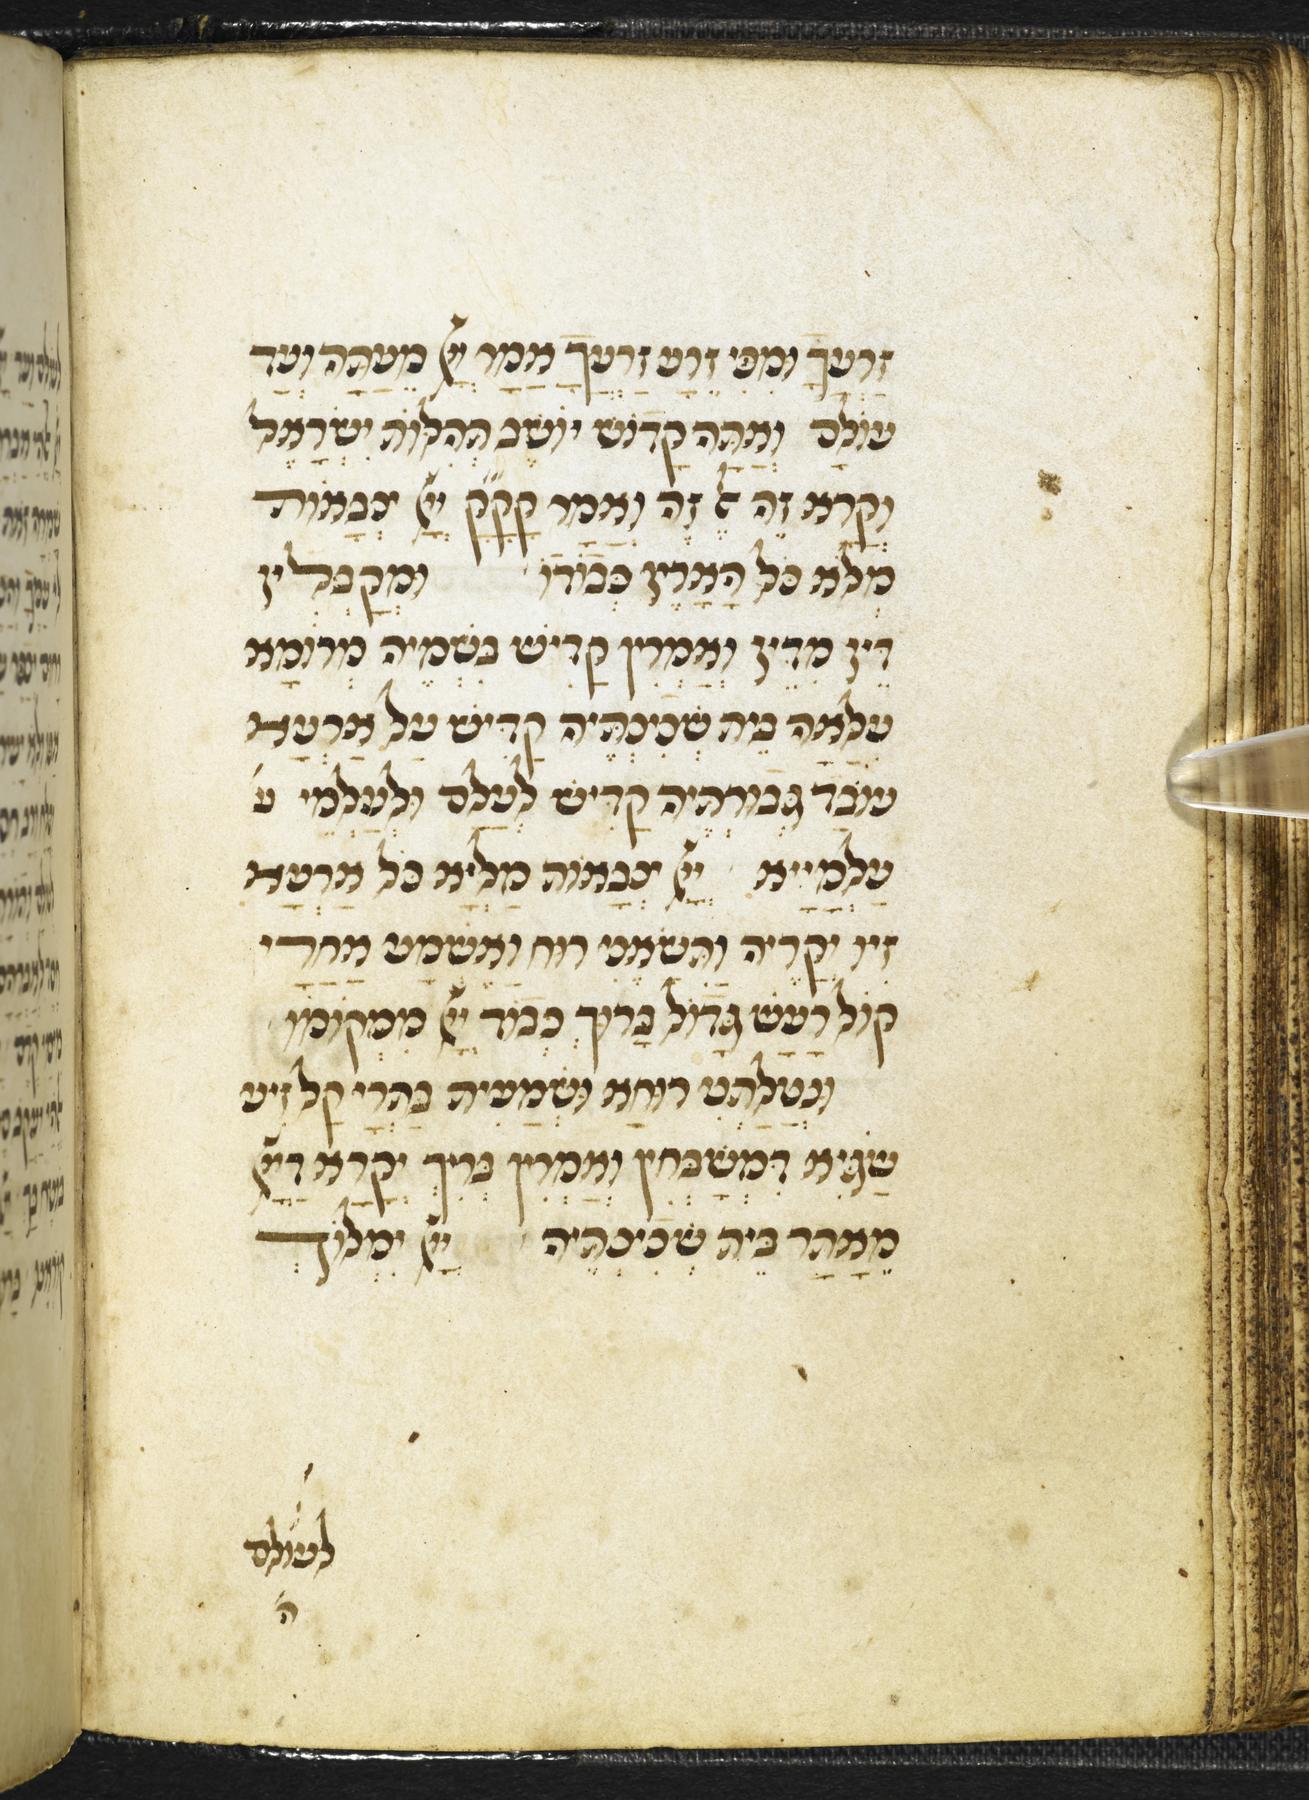 זַרְעֲךָ וּמִפִּי זֶרַע זַרְעֲךָ אָמַר יְיָ מֵעַתָּה וְעַד
עוֹלָם וְאַתָּה קָדוֹשׁ יוֹשֵׁב תְּהִלּוֹת יִשְׂרָאֵל
וְקָרָא זֶה אֶל זֶה וְאָמַר קָקָקָ יְיָ צְבָאוֹת
מְלֹא כָל הָאָרֶץ כְּבוֹדוֹ וּמְקַבְּלִין
דֵּין מִדֵּין וְאָמְרִין קַדִּישׁ בִּשְׁמֵיה מְרוֹמָא
עִלָּאָה בֵּית שְׁכִינְתֵּיהּ קַדִּישׁ עַל אַרְעָא
עוֹבַד גְּבוּרְתֵּיהּ קַדִּישׁ לְעָלַם וּלְעָלְמֵי ע׳
עָלְמַיָּא יְיָ צְבָאוֹת מַלְיָא כָל אַרְעָא
זִיו יְקָרֵיהּ וַתִּשָּׂאֵנִי רוּחַ וָאֶשְׁמַע אַחֲרַי
קוֹל רַעַשׁ גָּדוֹל בָּרוּךְ כְּבוֹד יְיָ מִמְּקוֹמוֹ
וּנְטָלַתְנִי רוּחָא וּשְׁמָעִית בַּתְרַי קָל זִיעַ
שַׂגִּיא דִּמְשַׁבְּחִין וְאָמְרִין בְּרִיךְ יְקָרָא דַיְיָ
מֵאֲתַר בֵּית שְׁכִינְתֵּיהּ יְיָ יִמְלוֹךְ
לעולם
ה׳